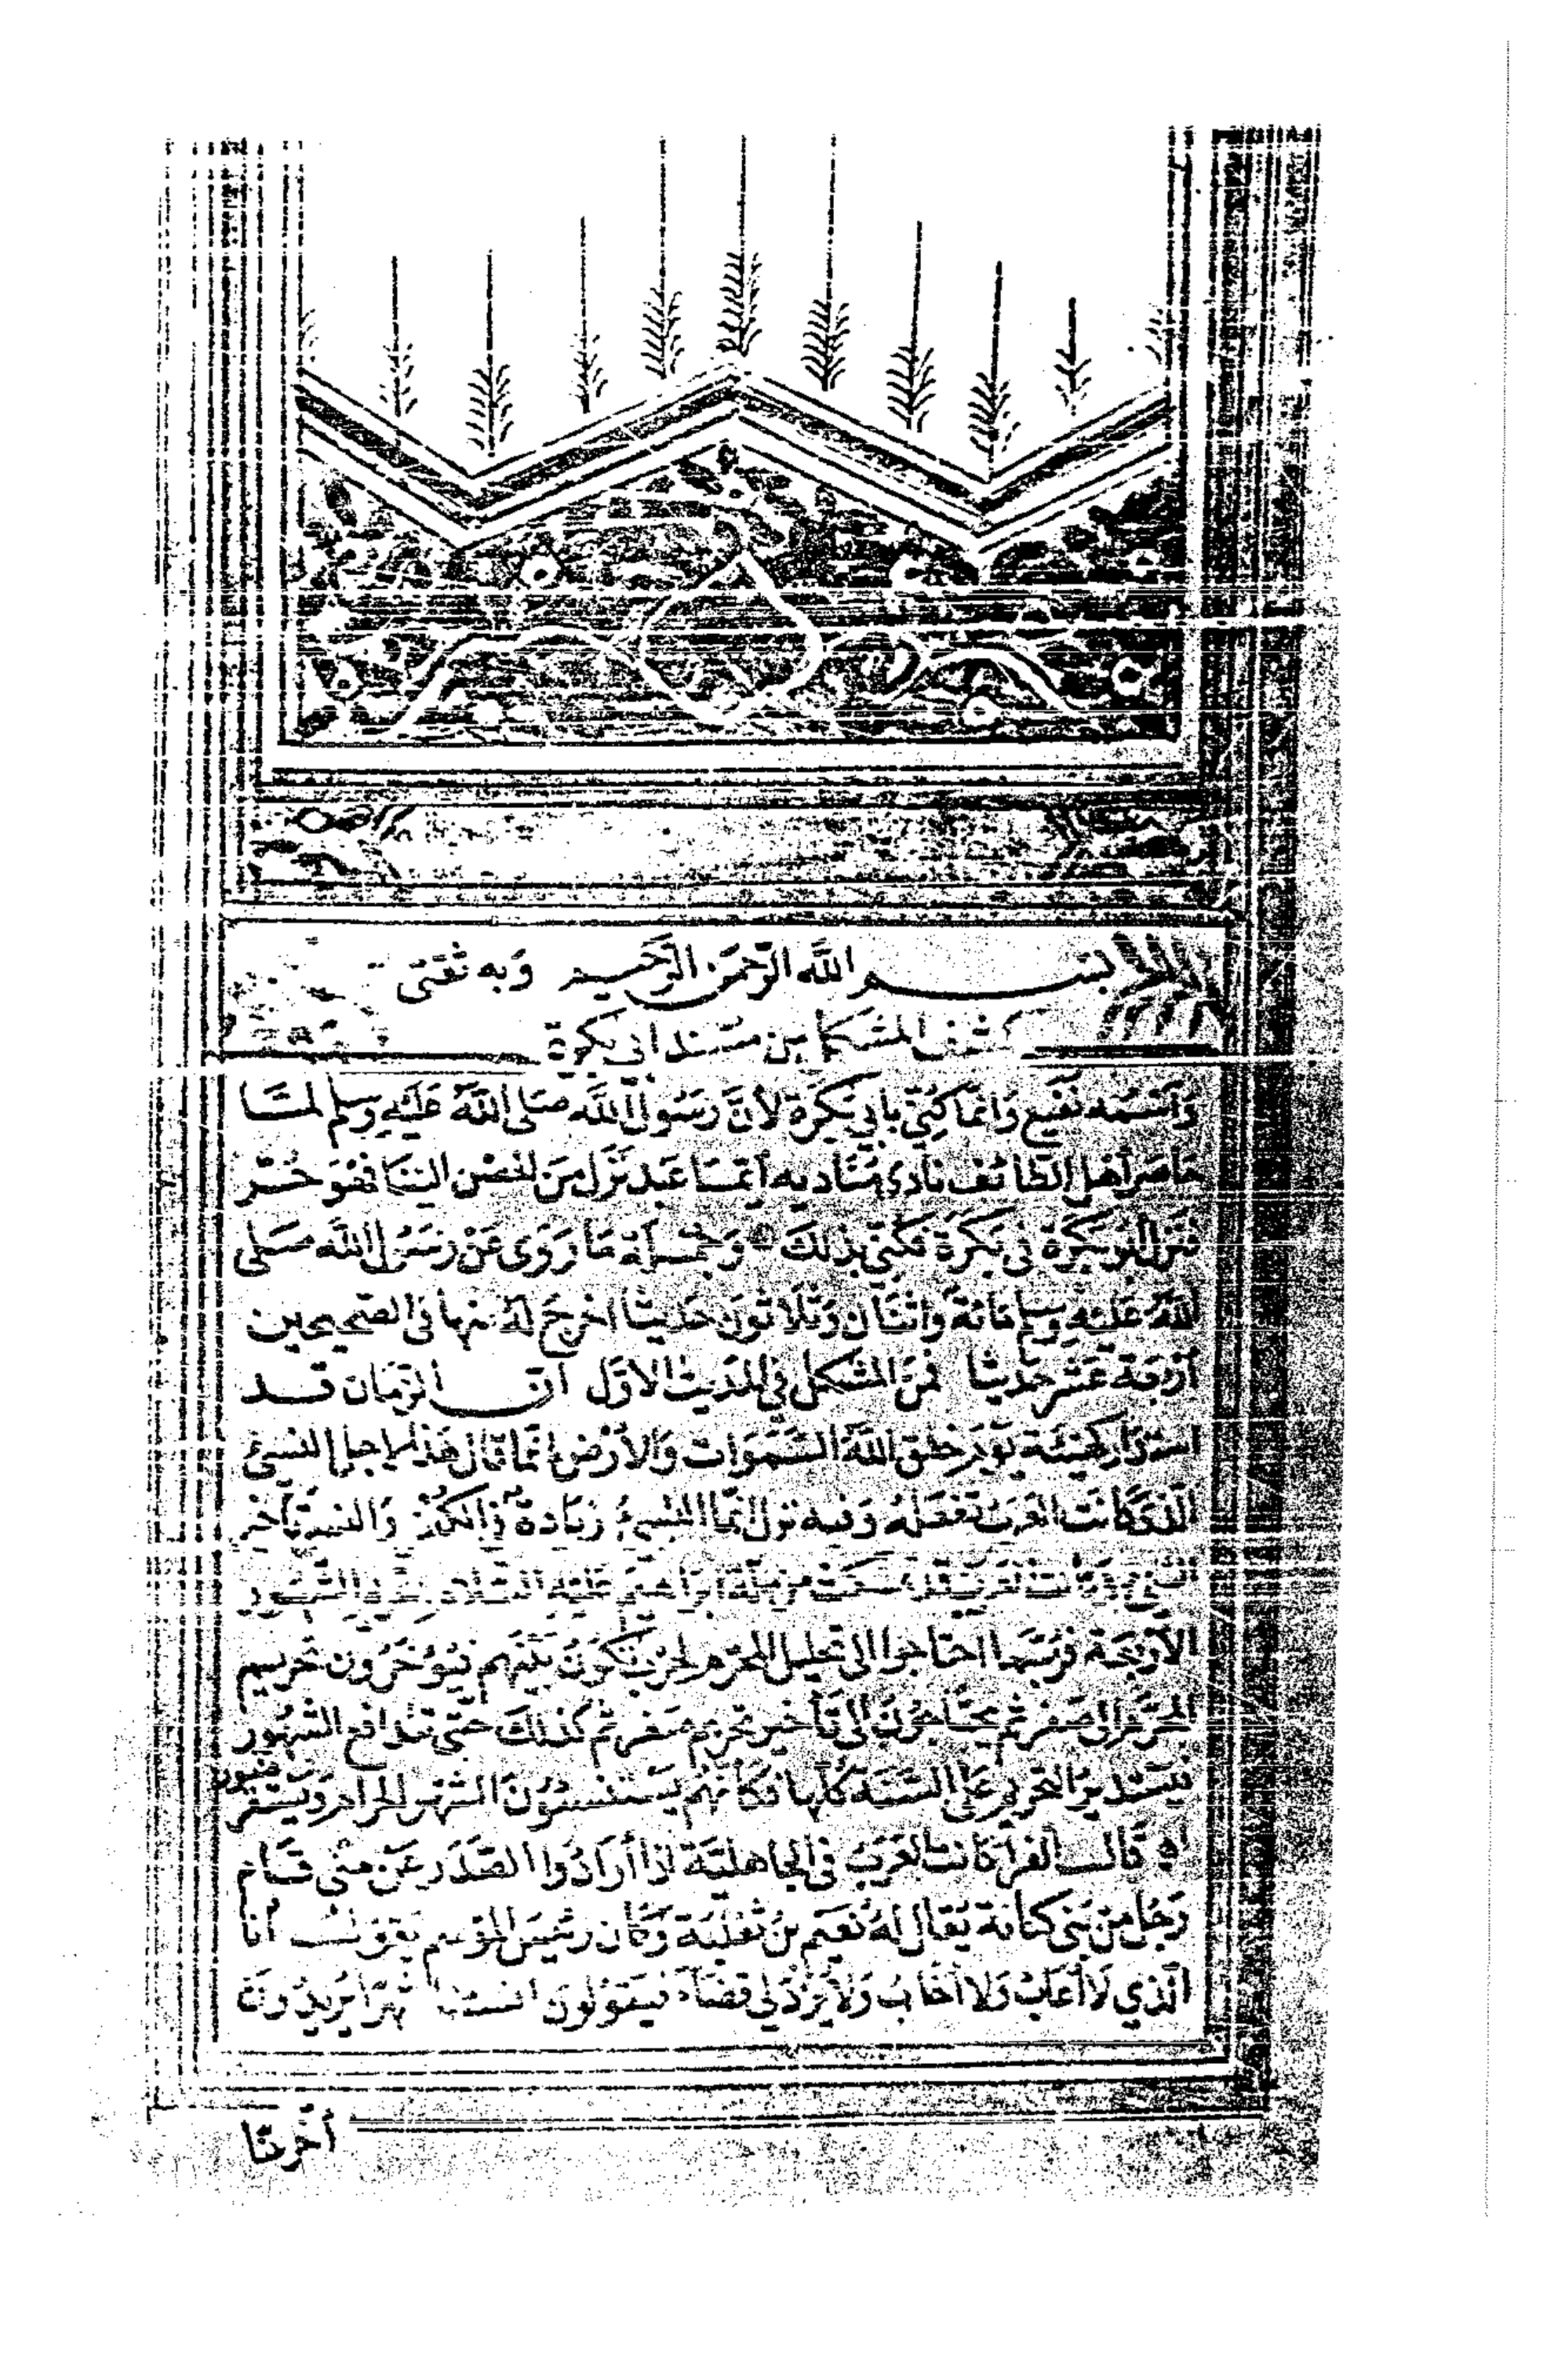 بسم الله الرحمن الرحيم وبه ثقتي
كشف المشكل من مسند أبي بكرة
واسمه نفيع وإنما كني بأبي بكرة لأن رسول الله صلى الله عليه وسلم لما
حاصر أهل الطائف نادى مناديه أيما عبد نزل من الحصن إلينا فهو حر
فنزل أبو بكرة في بكرة فكني بذلك وجملة ما روى عن رسول الله صلى
الله عليه وسلم مائة واثنان وثلاثون حديثا أخرج له منها في الصحيحين
أربعة عشر حديثا فمن المشكل في الحديث الأول أن الزمان قد
استدار كهيئته يوم خلق الله السموات والأرض إنما قال هذا لأجل النسيء
الذي كانت العرب تفعله وفيه نزل إنما النسيء زيادة في الكفر والنسيء تأخير
الشيء وكانت العرب قد تمسكت من ملة إبراهيم عليه السلام بتحريم الشهور
الأربعة فربما احتاجوا إلى تحليل المحرم لحرب تكون بينهم فيؤخرون تحريم
المحرم إلى صفر ثم يحتاجون إلى تأخير تحريم صفر ثم كذلك حتى تتدافع الشهور
فيستدير التحريم على السنة كلها فكأنهم يستنسئون الشهر الحرام ويستقرضون
قال الفراء كانت العرب في الجاهلية إذا أرادوا الصدر عن منى قام
رجل من بني كنانة يقال له نعيم بن ثعلبة وكان رئيس الموسم يقول أنا
الذي لا أعاب ولا أخاب ولا يرد لي قضاء فيقولون أنسئنا شهرا يريدون
أخر عنا